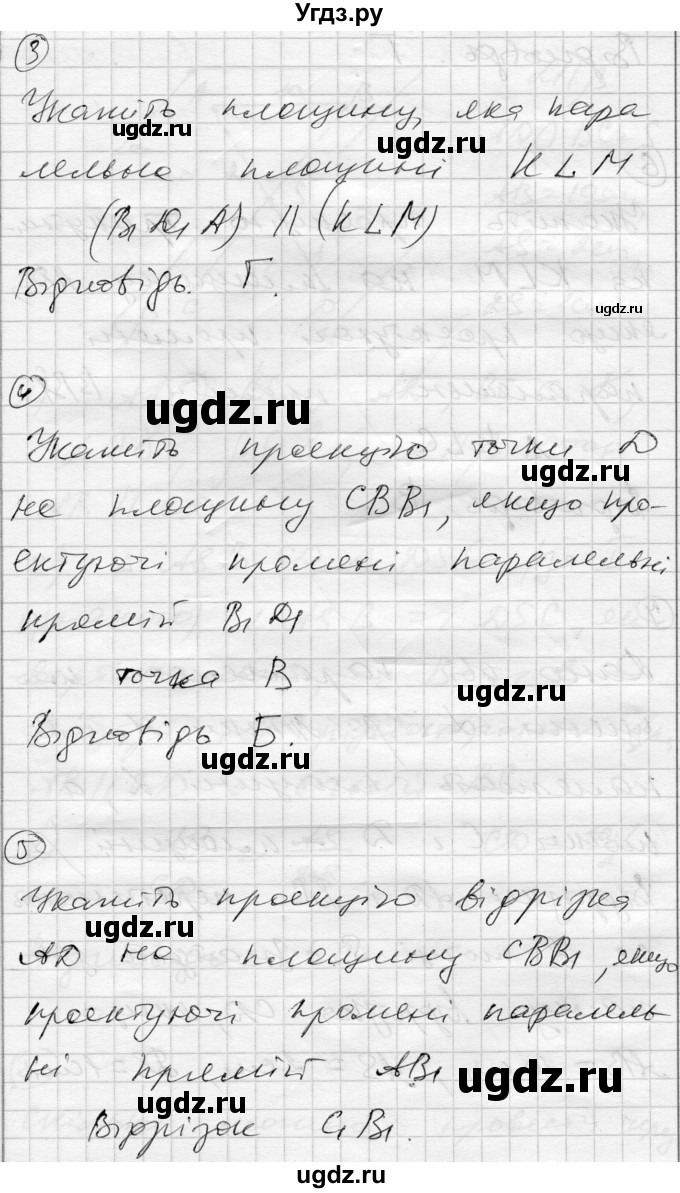 Угдз.ру
3
Укажіть площину, яка пара
лельна площині KLM
(B₁D₁A) || (KLM)
Відповідь. Г.
4
Укажіть проекцію точки D
на площину CBB₁, якщо про-
ектуючі промені паралельні
прямій B₁D₁
точка B
Відповідь Б.
5
Укажіть проекцію відрізка
AD на площину CBB₁, якщо
проектуючі промені паралель-
ні прямій AB₁
Відрізок C₁B₁.
ugdz.ru
ugdz.ru
ugdz.ru
ugdz.ru
ugdz.ru
ugdz.ru
ugdz.ru
ugdz.ru
ugdz.ru
ugdz.ru
ugdz.ru